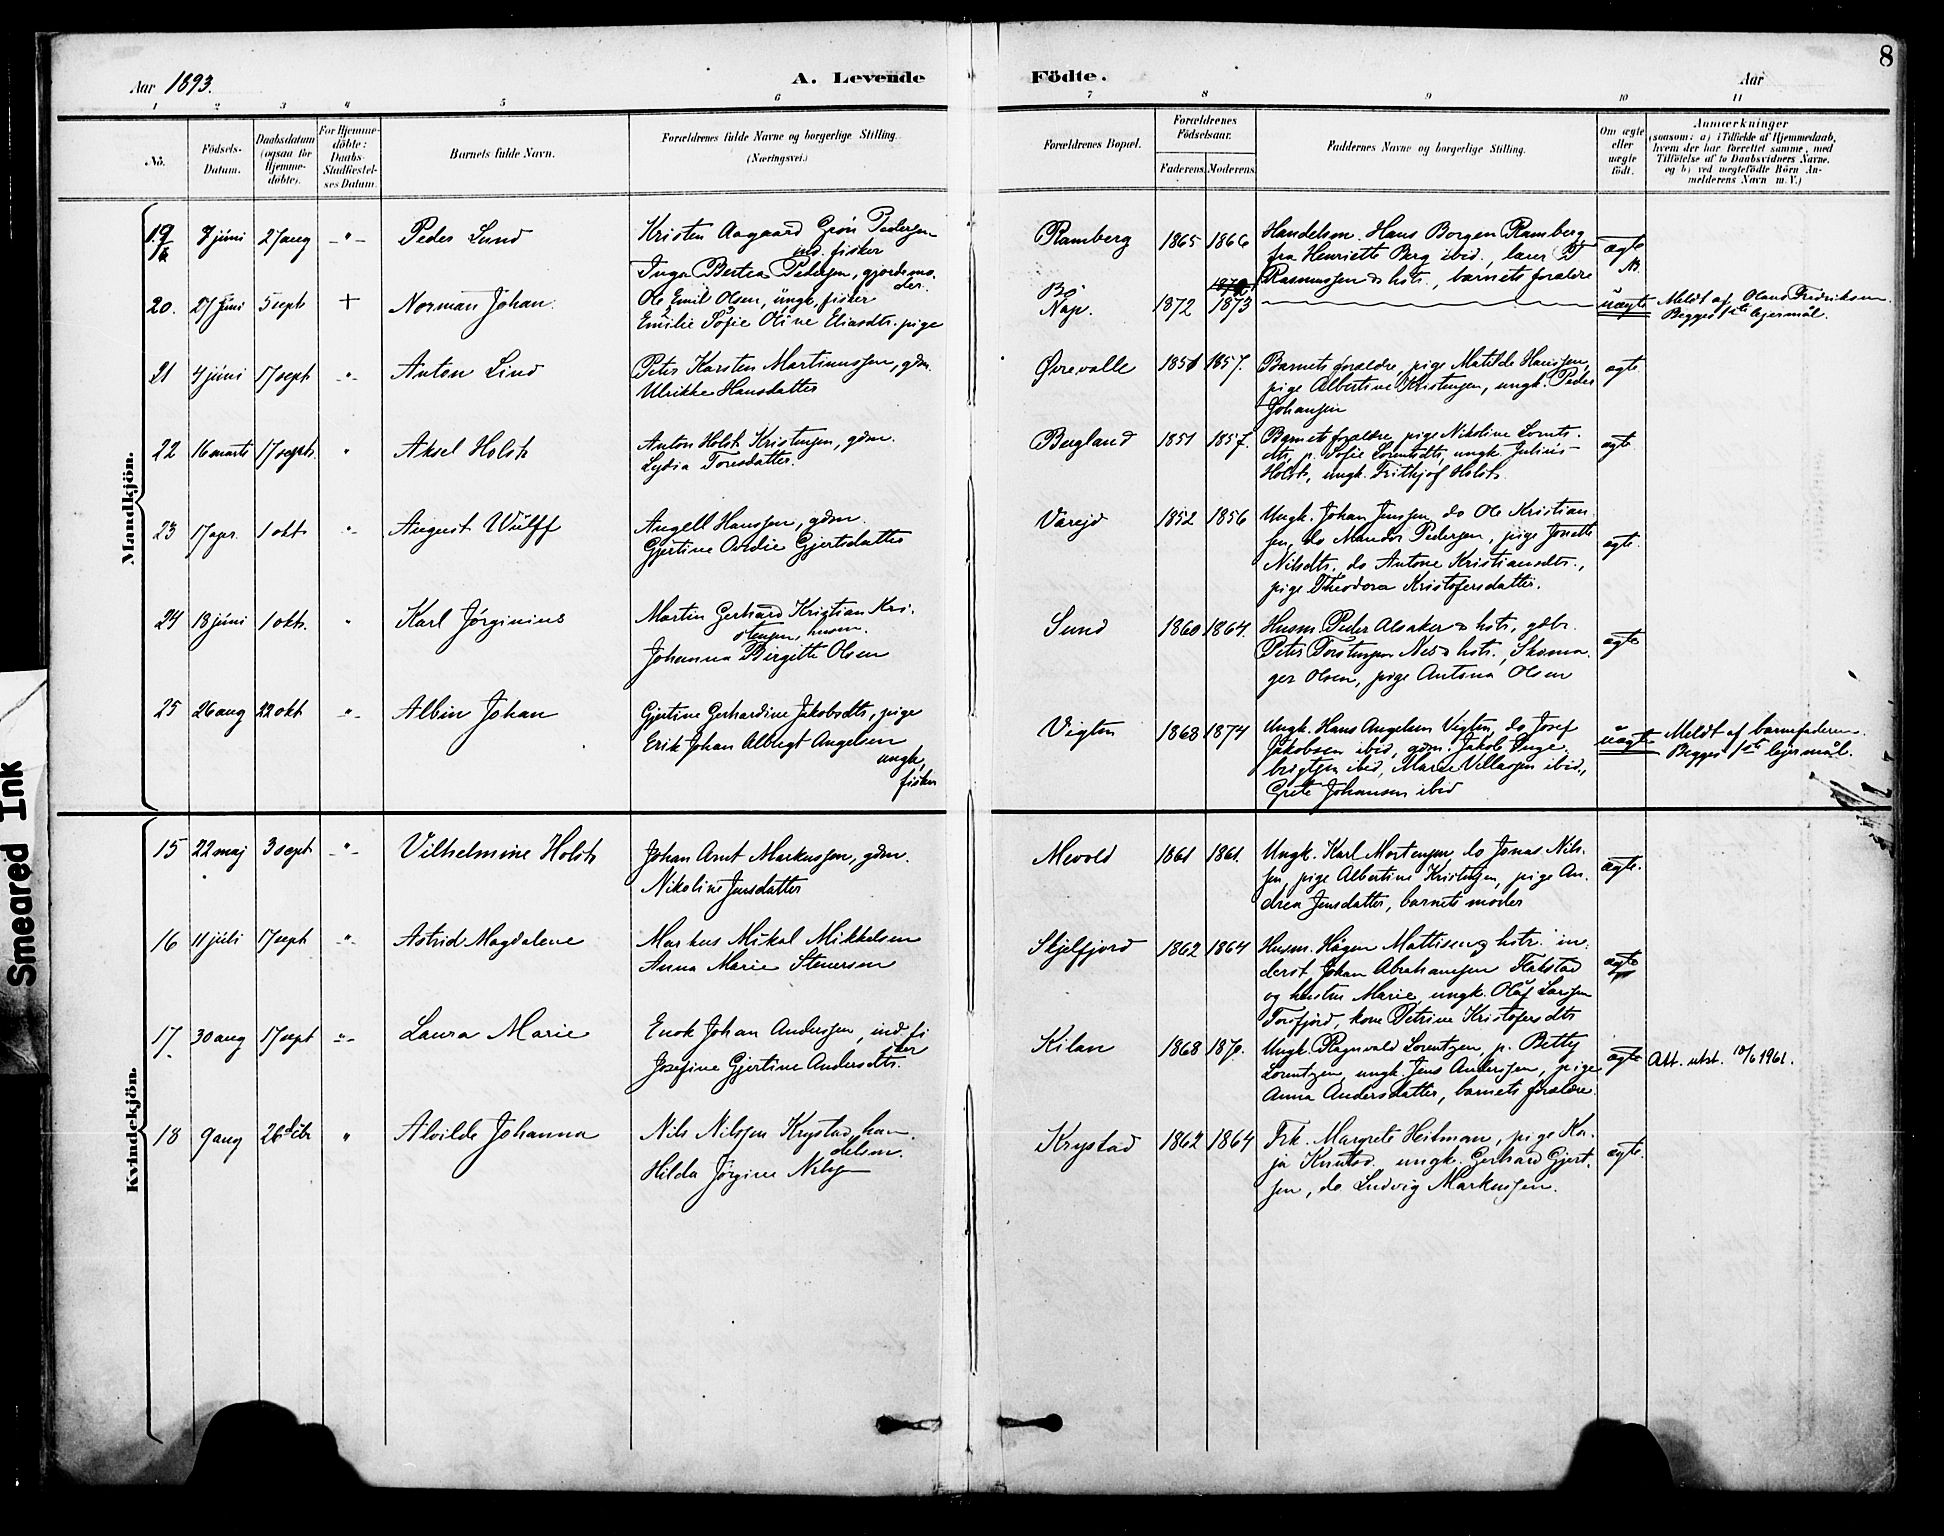 8
Aar 1893.
A. Levende Födte.
Aar
1 2 3 4 5 6 7 8 9 10 11
Nö.
Födsels-Datum.
Daabsdatum (ogsaa for Hjemme-döbte).
For Hjemme-döbte: Daabs-Stadfæstel-ses Datum.
Barnets fulde Navn.
Forældrenes fulde Navne og borgerlige Stilling. (Næringsvei.)
Forældrenes Bopæl.
Forældrenes Födselsaar.
Faderens Moderens
Faddernes Navne og borgerlige Stilling.
Om ægte eller uægte födt.
Anmærkninger
(saasom: a) i Tilfælde af Hjemmedaab,
hvem der har forrettet samme, med
Tilföielse af to Daabsvidners Navne,
og b) ved uægtefödte Börn An-
melderens Navn m. V.)
Mandkjön.
19 7 juni 27 aug -"- Peder Lund
Kristen Aagaard Grön Pedersen
ind. fisker
Inga Bertea Pedersen, gjordemo-
der.
Ramberg 1865 1866
Handelsm. Hans Borgen Ramberg
fra Henriette Berg ibid., lærer
Rasmussen & hstr., barnets forældre
ægte
20. 27 juni 5 sept + Norman Johan.
Ole Emil Olsen, ungk, fisker
Emilie Sofie Oline Eliasdtr. pige
Bö
Nap. 1872 1873
uægte
Meldt af Olaus Fredriksen.
Begges 1ste lejermål.
21 4 juni 17 sept -"- Anton Lind
Peter Karsten Martinussen, gdm.
Ulrikke Hansdatter
Ørevalle 1851 1857.
Barnets forældre, pige Matilde Hanssen,
pige Albertine Kristensen, ungk. Peder
Johansen
ægte.
22 16 marts 17 sept. " Aksel Holst
Anton Holst Kristensen, gdm.
Lydia Toresdatter.
Bergland 1851 1857.
Barnets forældre, pige Nikoline Lornts-
dtr, p. Sofie Lorentsdtr, ungk. Julius
Holst, ungk. Frithjof Holst.
ægte.
23 17 apr. 1 okt " August Wulff
Angell Hanssen, gdm.
Gjertine Ovedie Gjertsdatter
Vareid 1852 1856
Ungk. Johan Jenssen, do Ole Kristian-
sen, do Mandor Pedersen, pige Jonette
Nilsdtr. do Antone Kristiansdtr.,
pige Theodora Kristofersdatter.
ægte.
24 18 juni 1 okt. " Karl Jørginius
Martin Gerhard Kristian Kri-
stensen, husm.
Johanna Birgitte Olsen
Sund 1860 1864.
Husm. Peder Alsaker & hstr, gdbr.
Peter Torstensen Nes & hstr., Skoma-
ger Olsen, pige Antona Olsen
ægte
25 26 aug 22 okt -"- Albin Johan
Gjertine Gerhardine Jakobsdtr, pige
Erik Johan Albrigt Angelsen
ungk,
fisker
Vigten 1868 1874
Ungk. Hans Angelsen Vigten, do Josef
Jakobsen ibid, gdm. Jakob Inge-
brigtsen ibid, Marie Villassen ibid,
Grete Johansen ibid
uægte
Meldt af barnefaderen.
Begges 1ste lejermål.
Kvindekjön.
15 22 maj 3 sept -"- Vilhelmine Holst
Johan Arnt Markussen, gdm.
Nikoline Jensdatter
Mevold 1861 1861.
Ungk. Karl Mortensen, do Jonas Nils-
sen, pige Albertine Kristensen, pige An-
drea Jensdatter, barnets moder
ægte.
16 11 juli 17 sept -"- Astrid Magdalene
Markus Mikal Mikkelsen
Anna Marie Stenersen
Skjelfjord 1862 1864
Husm. Hågen Mattisen & hstr. in-
derst. Johan Abrahamsen Flakstad
og hustru Marie, ungk. Oluf Larsen
Torsfjord, kone Petrine Kristofersdtr
ægte
17. 30 aug 17 sept -"- Laura Marie
Enok Johan Anderssen, ind. fi-
sker
Josefine Gjertine Andersdtr.
Kilan 1868 1870.
Ungk. Ragnvald Lorentzen, p. Betty
Lorentzen, ungk. Jens Anderssen, pige
Anna Andersdatter, barnets forældre
ægte
Att. utst. 10/6 1961.
18 9 aug 26 dcbr " Alvilde Johanna
Nils Nilssen Krystad, han-
delsm.
Hilda Jørgine Nilsen
Krystad 1862 1864
Frk. Margrete Heitman, pige Ka-
ja Knutsd. ungk. Gerhard Gjert-
sen, do Ludvig Markussen.
ægte.
Smeared Ink